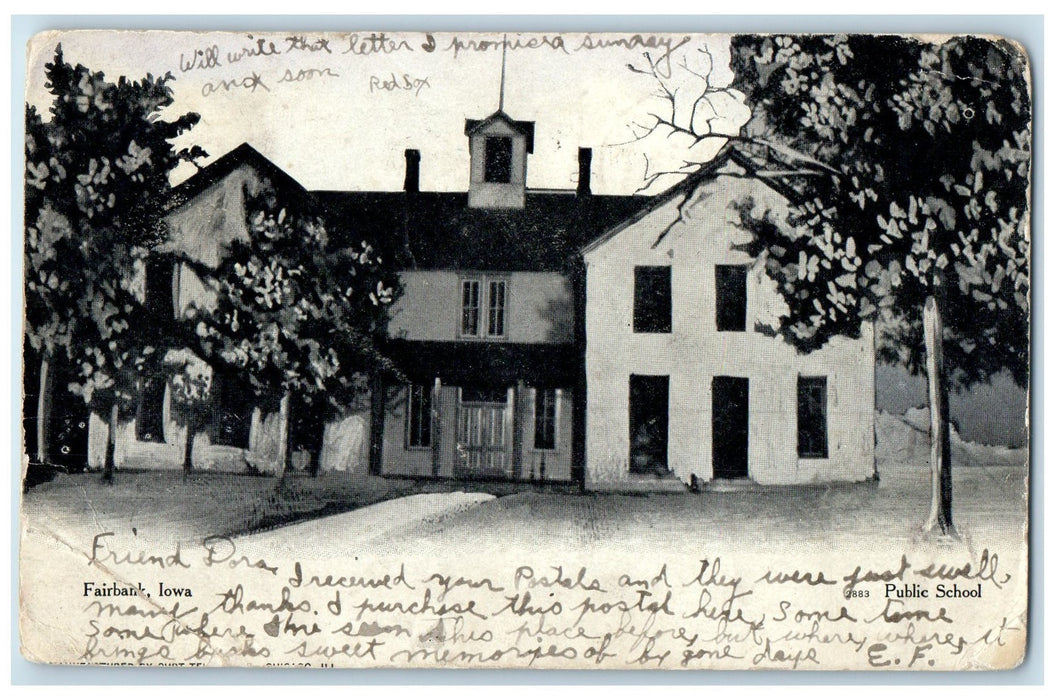 Will write that letter I promised sunday
and soon
Red Sox
Friend Dora,
I received your Postals and they were just swell,
Fairbank, Iowa
2883 Public School
many thanks. I purchase this postal here, Some time
Some where I've seen this place before, but, where, where, it
brings back sweet memories of by gone days E. F.
MANUFACTURED BY CURT TEICH CHICAGO, ILL.